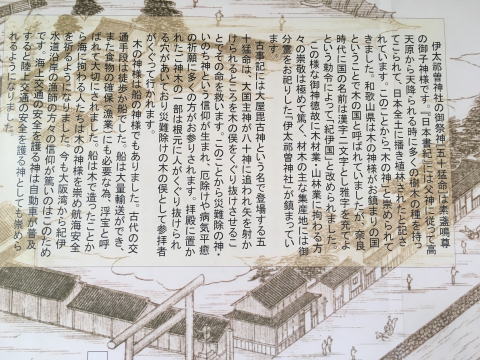 伊太祁曽神社の御祭神「五十猛命」は素盞嗚尊
の御子神様です。『日本書紀』には父神に従って高
天原から天降られる時に多くの樹木の種を持っ
てこられて、日本全土に播き植林されたと記さ
れています。このことから「木の神」と崇められて
きました。和歌山県は木の神様がお鎮まりの国
ということで木の国と呼ばれていましたが、奈良
時代に国の名前は漢字二文字とし雅字を充てよ
という勅令によって「紀伊国」と改められました。
この様な御神徳故に木材業・山林業に拘わる方
々の崇敬は極めて驚く、材木の主な集産地には御
分霊をお祀りした「伊太祁曽神社」が鎮まってい
ます。
古事記には大屋毘古神という名で登場する五
十猛命は、大国主神が八十神に追われ矢を射か
けられるところを木の俣をくぐり抜けさせるこ
とでその命を救います。このことから災難除の神・
いのち神という信仰が生まれ、厄除けや病気平癒
の祈願に多くの方がお参りされます。拝殿に置か
れたご神木の一部は根元に人がくぐり抜けられ
る穴があいており災難除けの木の俣として参拝者
がくぐって行かれます。
木の神様は船の神様でもありました。古代の交
通手段は徒歩か船でした。船は大量輸送ができ、
また食物の確保（漁業）にも必要な為、浮宝と呼
ばれて大切にされました。船は木で造ったことか
ら海に拘わる人たちは木の神様を崇め航海安全
を祈るようになりました。今も大阪湾から紀伊
水道沿岸の漁師の方々の信仰が驚いのはこのため
です。海上交通の安全を護る神は自動車が普及
すると陸上交通の安全を護る神としても崇めら
れるようになりました。